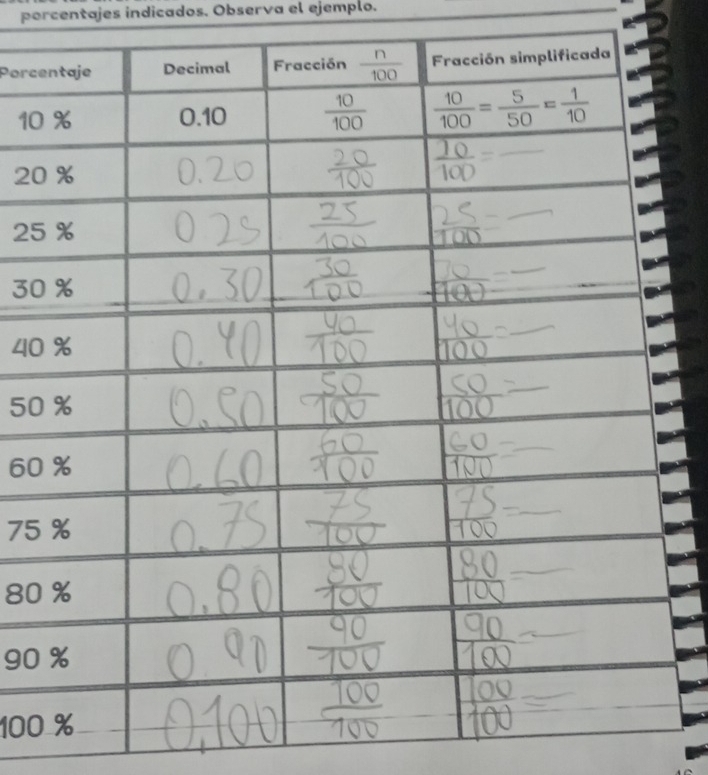 porcentajes indicados. Observa el ejemplo.
Porcentaje Decimal Fracción n/100 Fracción simplificada
10 % 0.10 10/100 10/100 = 5/50 = 1/10
20 % 0.20 20/100 20/100 = —
25 % 0.25 25/100 25/100 = —
30 % 0.30 30/100 30/100 = —
40 % 0.40 40/100 40/100 = —
50 % 0.50 50/100 50/100 = —
60 % 0.60 60/100 60/100 = —
75 % 0.75 75/100 75/100 = —
80 % 0.80 80/100 80/100 = —
90 % 0.90 90/100 90/100 = —
100 % 0,100 100/100 100/100 = —